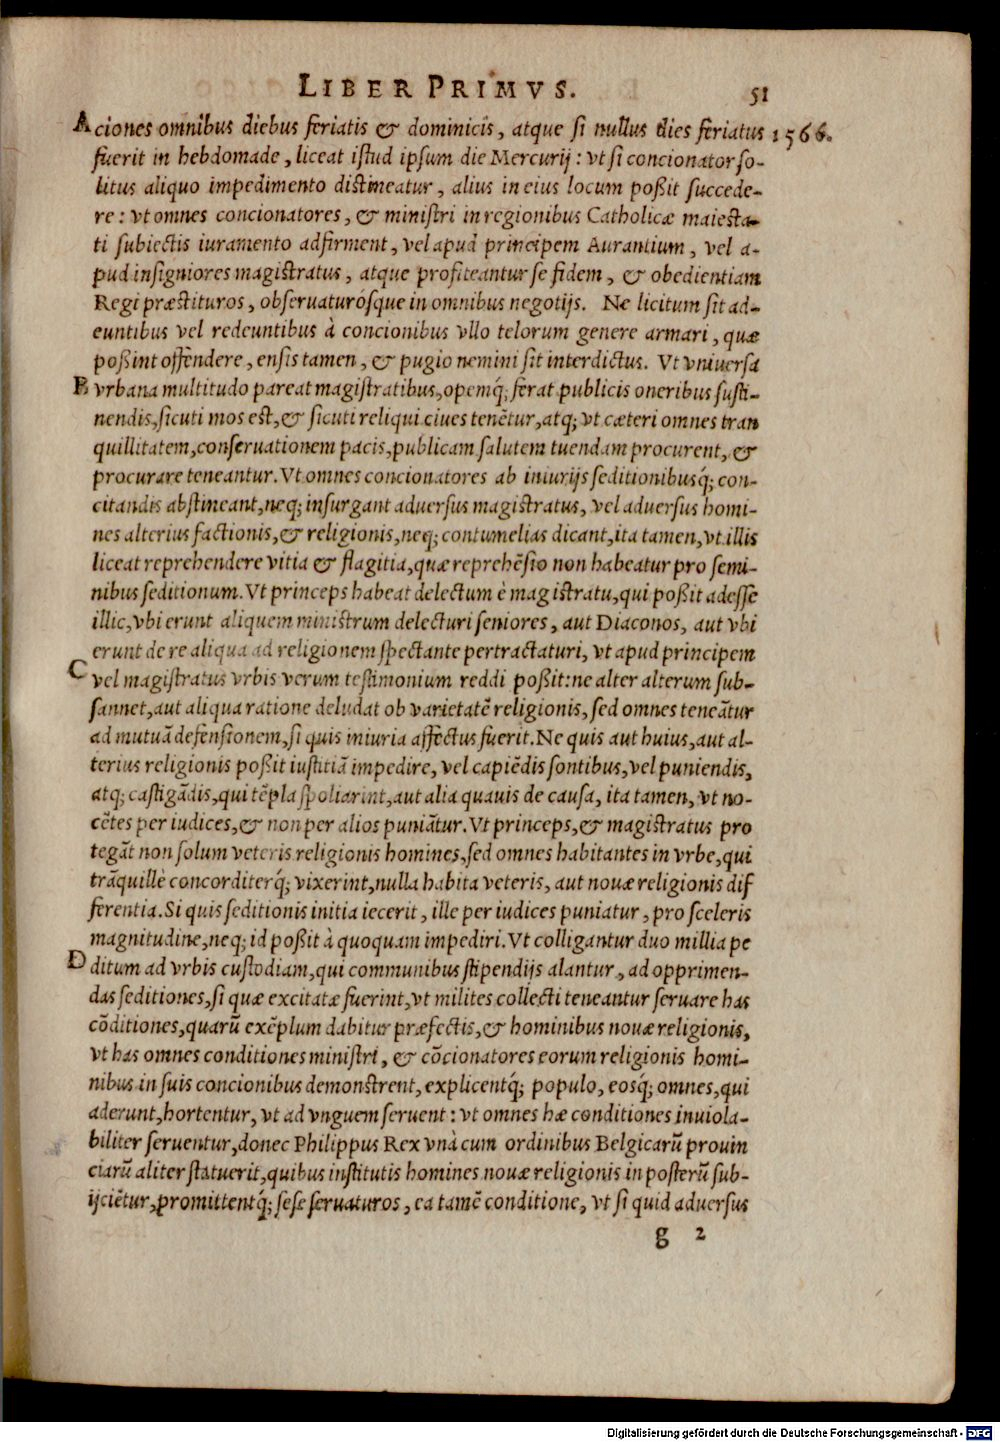 LIBER PRIMVS. 51
A ciones omnibus diebus feriatis & dominicis, atque si nullus dies feriatus 1566.
fuerit in hebdomade, liceat istud ipsum die Mercurij: vt si concionator so-
litus aliquo impedimento distineatur, alius in eius locum poßit succede-
re: vt omnes concionatores, & ministri in regionibus Catholicæ maiesta-
ti subiectis iuramento adfirment, vel apud principem Aurantium, vel a-
pud insigniores magistratus, atque profiteantur se fidem, & obedientiam
Regi præstituros, obseruaturósque in omnibus negotijs. Ne licitum sit ad-
euntibus vel redeuntibus à concionibus vllo telorum genere armari, quæ
poßint offendere, ensis tamen, & pugio nemini sit interdictus. Vt vniuersa
B vrbana multitudo pareat magistratibus, opemq́; ferat publicis oneribus susti-
nendis, sicuti mos est, & sicuti reliqui ciues tenētur, atq; vt cæteri omnes tran
quillitatem, conseruationem pacis, publicam salutem tuendam procurent, &
procurare teneantur. Vt omnes concionatores ab iniurijs seditionibusq́; con-
citandis abstineant, neq; insurgant aduersus magistratus, vel aduersus homi-
nes alterius factionis, & religionis, neq; contumelias dicant, ita tamen, vt illis
liceat reprehendere vitia & flagitia, quæ reprehēsio non habeatur pro semi-
nibus seditionum. Vt princeps habeat delectum è magistratu, qui poßit adesse
illic, vbi erunt aliquem ministrum delecturi seniores, aut Diaconos, aut vbi
erunt de re aliqua ad religionem spectante pertractaturi, vt apud principem
C vel magistratus vrbis verum testimonium reddi poßit: ne alter alterum sub-
sannet, aut aliqua ratione deludat ob varietatē religionis, sed omnes teneātur
ad mutuā defensionem, si quis iniuria affectus fuerit. Ne quis aut huius, aut al-
terius religionis poßit iustitiā impedire, vel capiēdis sontibus, vel puniendis,
atq; castigādis, qui tēpla spoliarint, aut alia quauis de causa, ita tamen, vt no-
cētes per iudices, & non per alios puniātur. Vt princeps, & magistratus pro
tegāt non solum veteris religionis homines, sed omnes habitantes in vrbe, qui
trāquillè concorditerq́; vixerint, nulla habita veteris, aut nouæ religionis dif
ferentia. Si quis seditionis initia iecerit, ille per iudices puniatur, pro sceleris
magnitudine, neq; id poßit à quoquam impediri. Vt colligantur duo millia pe
D ditum ad vrbis custodiam, qui communibus stipendijs alantur, ad opprimen-
das seditiones, si quæ excitatæ fuerint, vt milites collecti teneantur seruare has
cōditiones, quarū exēplum dabitur præfectis, & hominibus nouæ religionis,
vt has omnes conditiones ministri, & cōcionatores eorum religionis homi-
nibus in suis concionibus demonstrent, explicentq́; populo, eosq́; omnes, qui
aderunt, hortentur, vt ad vnguem seruent: vt omnes hæ conditiones inuiola-
biliter seruentur, donec Philippus Rex vnà cum ordinibus Belgicarū prouin
ciarū aliter statuerit, quibus institutis homines nouæ religionis in posterū sub-
ijciētur, promittentq́; sese seruaturos, ea tamē conditione, vt si quid aduersus
g 2
Digitalisierung gefördert durch die Deutsche Forschungsgemeinschaft - DFG